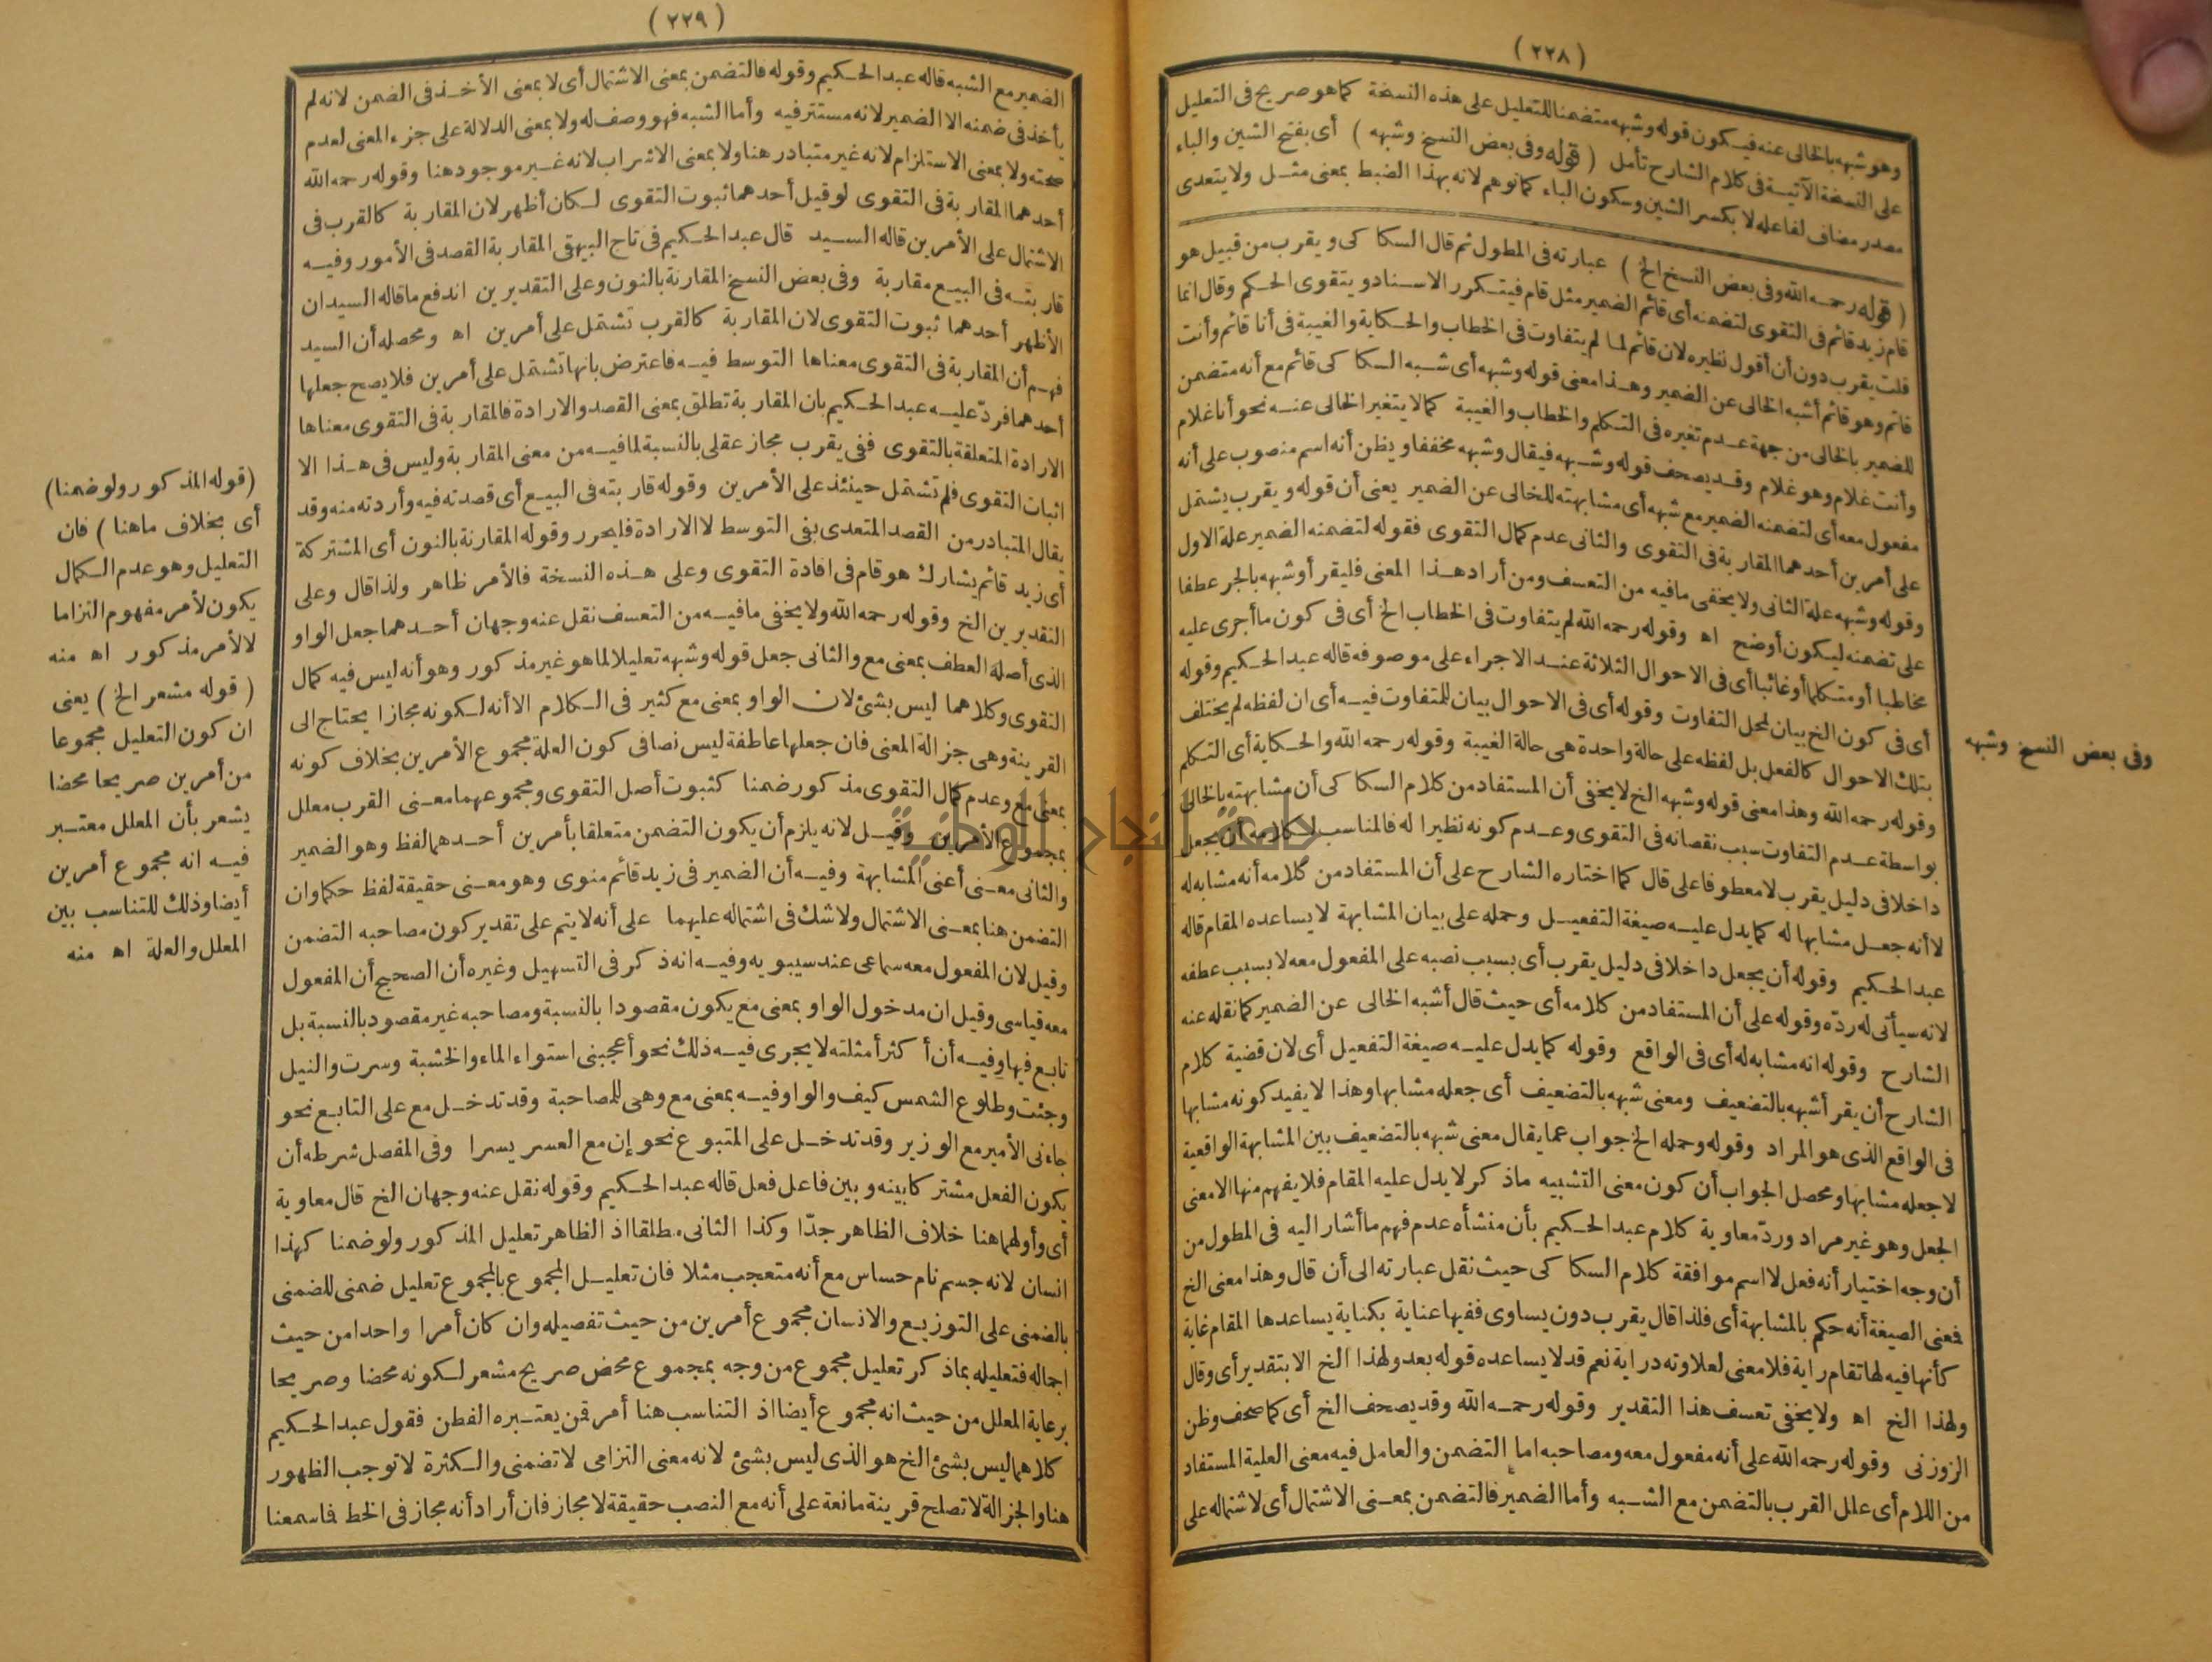 (٢٢٨)
وهو شبهه بالخالى عنه فيكون قوله وشبهه متضمنا للتعليل على هذه النسخة كما هو صريح فى التعليل
على النسخة الآتية فى كلام الشارح تأمل (قوله وفى بعض النسخ وشبهه) أى بفتح الشين والباء
مصدر مضاف لفاعله لا بكسر الشين وسكون الباء كما توهم لانه بهذا الضبط بمعنى مثل ولا يتعدى
(قوله رحمه الله وفى بعض النسخ الخ) عبارته فى المطول ثم قال السكاكى ويقرب من قبيل هو
قام زيد قائم فى التقوى لتضمنه أى قائم الضمير مثل قام فيتكرر الاسناد ويتقوى الحكم وقال انما
قلت يقرب دون أن أقول نظيره لان قائم لما لم يتفاوت فى الخطاب والحكاية والغيبة فى أنا قائم وأنت
قائم وهو قائم أشبه الخالى عن الضمير وهذا معنى قوله وشبهه أى شبه السكاكى قائم مع أنه متضمن
للضمير بالخالى من جهة عدم تغيره فى التكلم والخطاب والغيبة كما لا يتغير الخالى عنه نحو أنا غلام
وأنت غلام وهو غلام وقد يصحف قوله وشبهه فيقال وشبهه مخففا ويظن أنه اسم منصوب على أنه
مفعول معه أى لتضمنه الضمير مع شبهه أى مشابهته للخالى عن الضمير يعنى أن قوله ويقرب يشتمل
على أمرين أحدهما المقاربة فى التقوى والثانى عدم كمال التقوى فقوله لتضمنه الضمير علة الاول
وقوله وشبهه علة الثانى ولا يخفى ما فيه من التعسف ومن أراد هذا المعنى فليقرأ وشبهه بالجر عطفا
على تضمنه ليكون أوضح اه وقوله رحمه الله لم يتفاوت فى الخطاب الخ أى فى كون ما أجرى عليه
مخاطبا أو متكلما أو غائبا أى فى الاحوال الثلاثة عند الاجراء على موصوفه قاله عبد الحكيم وقوله
أى فى كون الخ بيان لمحل التفاوت وقوله أى فى الاحوال بيان للمتفاوت فيه أى ان لفظه لم يختلف
بتلك الاحوال كالفعل بل لفظه على حالة واحدة هى حالة الغيبة وقوله رحمه الله والحكاية أى التكلم
وقوله رحمه الله وهذا معنى قوله وشبهه الخ لا يخفى أن المستفاد من كلام السكاكى أن مشابهته بالخالى
بواسطة عدم التفاوت سبب نقصانه فى التقوى وعدم كونه نظيرا له فالمناسب لكلامه أن يجعل
داخلا فى دليل يقرب لا معطوفا على قال كما اختاره الشارح على أن المستفاد من كلامه أنه مشابه له
لا أنه جعل مشابها له كما يدل عليه صيغة التفعيل وحمله على بيان المشابهة لا يساعده المقام قاله
عبد الحكيم وقوله أن يجعل داخلا فى دليل يقرب أى بسبب نصبه على المفعول معه لا بسبب عطفه
لانه سيأتى له ردّه وقوله على أن المستفاد من كلامه أى حيث قال أشبه الخالى عن الضمير كما نقله عنه
الشارح وقوله انه مشابه له أى فى الواقع وقوله كما يدل عليه صيغة التفعيل أى لان قضية كلام
الشارح أن يقرأ شبهه بالتضعيف ومعنى شبهه بالتضعيف أى جعله مشابها وهذا لا يفيد كونه مشابها
فى الواقع الذى هو المراد وقوله وحمله الخ جواب عما يقال معنى شبهه بالتضعيف بين المشابهة الواقعية
لا جعله مشابها ومحصل الجواب أن كون معنى التشبيه ما ذكر لا يدل عليه المقام فلا يفهم منها الا معنى
الجعل وهو غير مراد وردّ معاوية كلام عبد الحكيم بأن منشأه عدم فهم ما أشار اليه فى المطول من
أن وجه اختيار أنه فعل لا اسم موافقة كلام السكاكى حيث نقل عبارته الى أن قال وهذا معنى الخ
فعنى الصيغة أنه حكم بالمشابهة أى فلذا قال يقرب دون يساوى ففيها عناية بكناية يساعدها المقام غاية
كأنها فيه لها تقام راية فلا معنى لعلاوته دراية نعم قد لا يساعده قوله بعد ولهذا الخ الا بتقدير أى وقال
ولهذا الخ اه ولا يخفى تعسف هذا التقدير وقوله رحمه الله وقد يصحف الخ أى كما صحف وظن
الزوزنى وقوله رحمه الله على أنه مفعول معه ومصاحبه اما التضمن والعامل فيه معنى العلية المستفاد
من اللام أى علل القرب بالتضمن مع الشبه وأما الضمير فالتضمن بمعنى الاشتمال أى لاشتماله على
وفى بعض النسخ وشبهه
(٢٢٩)
الضمير مع الشبه قاله عبد الحكيم وقوله فالتضمن بمعنى الاشتمال أى لا بمعنى الأخذ فى الضمن لانه لم
يأخذ فى ضمنه الا الضمير لانه مستتر فيه وأما الشبه فهو وصف له ولا بمعنى الدلالة على جزء المعنى لعدم
صحته ولا بمعنى الاستلزام لانه غير متبادر هنا ولا بمعنى الاشراب لانه غير موجود هنا وقوله رحمه الله
أحدهما المقاربة فى التقوى لو قيل أحدهما ثبوت التقوى لكان أظهر لان المقاربة كالقرب فى
الاشتمال على الأمرين قاله السيد قال عبد الحكيم فى تاج البيهقى المقاربة القصد فى الأمور وفيه
قاربته فى البيع مقاربة وفى بعض النسخ المقارنة بالنون وعلى التقديرين اندفع ما قاله السيد ان
الأظهر أحدهما ثبوت التقوى لان المقاربة كالقرب تشتمل على أمرين اه ومحصله أن السيد
فهم أن المقاربة فى التقوى معناها التوسط فيه فاعترض بانها تشتمل على أمرين فلا يصح جعلها
أحدهما فردّ عليه عبد الحكيم بان المقاربة تطلق بمعنى القصد والارادة فالمقاربة فى التقوى معناها
الارادة المتعلقة بالتقوى ففى يقرب مجاز عقلى بالنسبة لما فيه من معنى المقاربة وليس فى هذا الا
اثبات التقوى فلم تشتمل حينئذ على الأمرين وقوله قاربته فى البيع أى قصدته فيه وأردته منه وقد
يقال المتبادر من القصد المتعدى بفى التوسط لا الارادة فليحرر وقوله المقارنة بالنون أى المشتركة
أى زيد قائم يشارك هو قام فى افادة التقوى وعلى هذه النسخة فالأمر ظاهر ولذا قال وعلى
التقديرين الخ وقوله رحمه الله ولا يخفى ما فيه من التعسف نقل عنه وجهان أحدهما جعل الواو
الذى أصله العطف بمعنى مع والثانى جعل قوله وشبهه تعليلا لما هو غير مذكور وهو أنه ليس فيه كمال
التقوى وكلاهما ليس بشئ لان الواو بمعنى مع كثير فى الكلام الا أنه لكونه مجازا يحتاج الى
القرينة وهى جزالة المعنى فان جعلها عاطفة ليس نصا فى كون العلة مجموع الأمرين بخلاف كونه
بمعنى مع وعدم كمال التقوى مذكور ضمنا كثبوت أصل التقوى ومجموعهما معنى القرب معلل
بمجموع الأمرين وقيل لانه يلزم أن يكون التضمن متعلقا بأمرين أحدهما لفظ وهو الضمير
والثانى معنى أعنى المشابهة وفيه أن الضمير فى زيد قائم منوى وهو معنى حقيقة لفظ حكما وان
التضمن هنا بمعنى الاشتمال ولا شك فى اشتماله عليهما على أنه لا يتم على تقدير كون مصاحبه التضمن
وقيل لان المفعول معه سماعى عند سيبويه وفيه انه ذكر فى التسهيل وغيره أن الصحيح أن المفعول
معه قياسى وقيل ان مدخول الواو بمعنى مع يكون مقصودا بالنسبة ومصاحبه غير مقصود بالنسبة بل
تابع فيها وفيه أن أكثر أمثلته لا يجرى فيه ذلك نحو أعجبنى استواء الماء والخشبة وسرت والنيل
وجئت وطلوع الشمس كيف والواو فيه بمعنى مع وهى للمصاحبة وقد تدخل مع على التابع نحو
جاءنى الأمير مع الوزير وقد تدخل على المتبوع نحو إن مع العسر يسرا وفى المفصل شرطه أن
يكون الفعل مشتركا بينه وبين فاعل فعل قاله عبد الحكيم وقوله نقل عنه وجهان الخ قال معاوية
أى وأولهما هنا خلاف الظاهر جدّا وكذا الثانى مطلقا اذ الظاهر تعليل المذكور ولو ضمنا كهذا
انسان لانه جسم نام حساس مع أنه متعجب مثلا فان تعليل المجموع بالمجموع تعليل ضمنى للضمنى
بالضمنى على التوزيع والانسان مجموع أمرين من حيث تفصيله وان كان أمرا واحدا من حيث
اجماله فتعليله بماذكر تعليل مجموع من وجه بمجموع محض صريح مشعر لكونه محضا وصريحا
برعاية المعلل من حيث انه مجموع أيضا اذ التناسب هنا أمر قمن يعتبره الفطن فقول عبد الحكيم
كلاهما ليس بشئ الخ هو الذى ليس بشئ لانه معنى التزامى لا تضمنى والكثرة لا توجب الظهور
هنا والجزالة لا تصلح قرينة مانعة على أنه مع النصب حقيقة لا مجاز فان أراد أنه مجاز فى الخط فاسمعنا
(قوله المذكور ولو ضمنا)
أى بخلاف ما هنا) فان
التعليل وهو عدم الكمال
يكون لأمر مفهوم التزاما
لا لأمر مذكور اه منه
(قوله مشعر الخ) يعنى
ان كون التعليل مجموعا
من أمرين صريحا محضا
يشعر بأن المعلل معتبر
فيه انه مجموع أمرين
أيضا وذلك للتناسب بين
المعلل والعلة اه منه
جامعة النجاح الوطنية